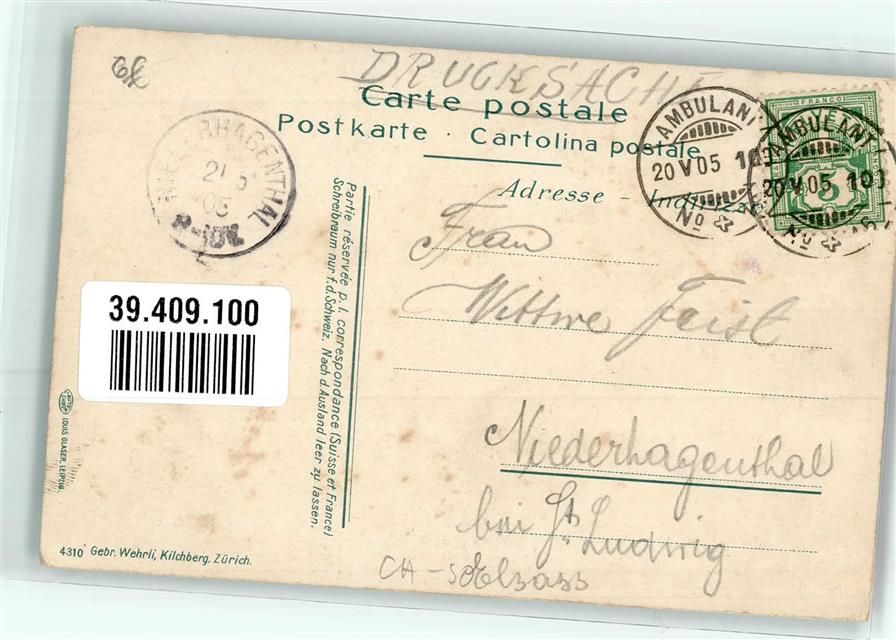 DRUCKSACHE
Carte postale
Postkarte · Cartolina postale
Adresse - Indirizzo
AMBULANT
20 V 05
No
FRANCO
5
AMBULANT
20 V 05
No
NIEDERHAGENTHAL
21 5
05
Frau
Wittwe Feist
Niederhagenthal
bei St. Ludwig
Elsass
Partie réservée p. l. correspondance (Suisse et France)
Schreibraum nur f. d. Schweiz. Nach d. Ausland leer zu lassen.
39.409.100
LOUIS GLASER, LEIPZIG.
4310 Gebr. Wehrli, Kilchberg, Zürich.